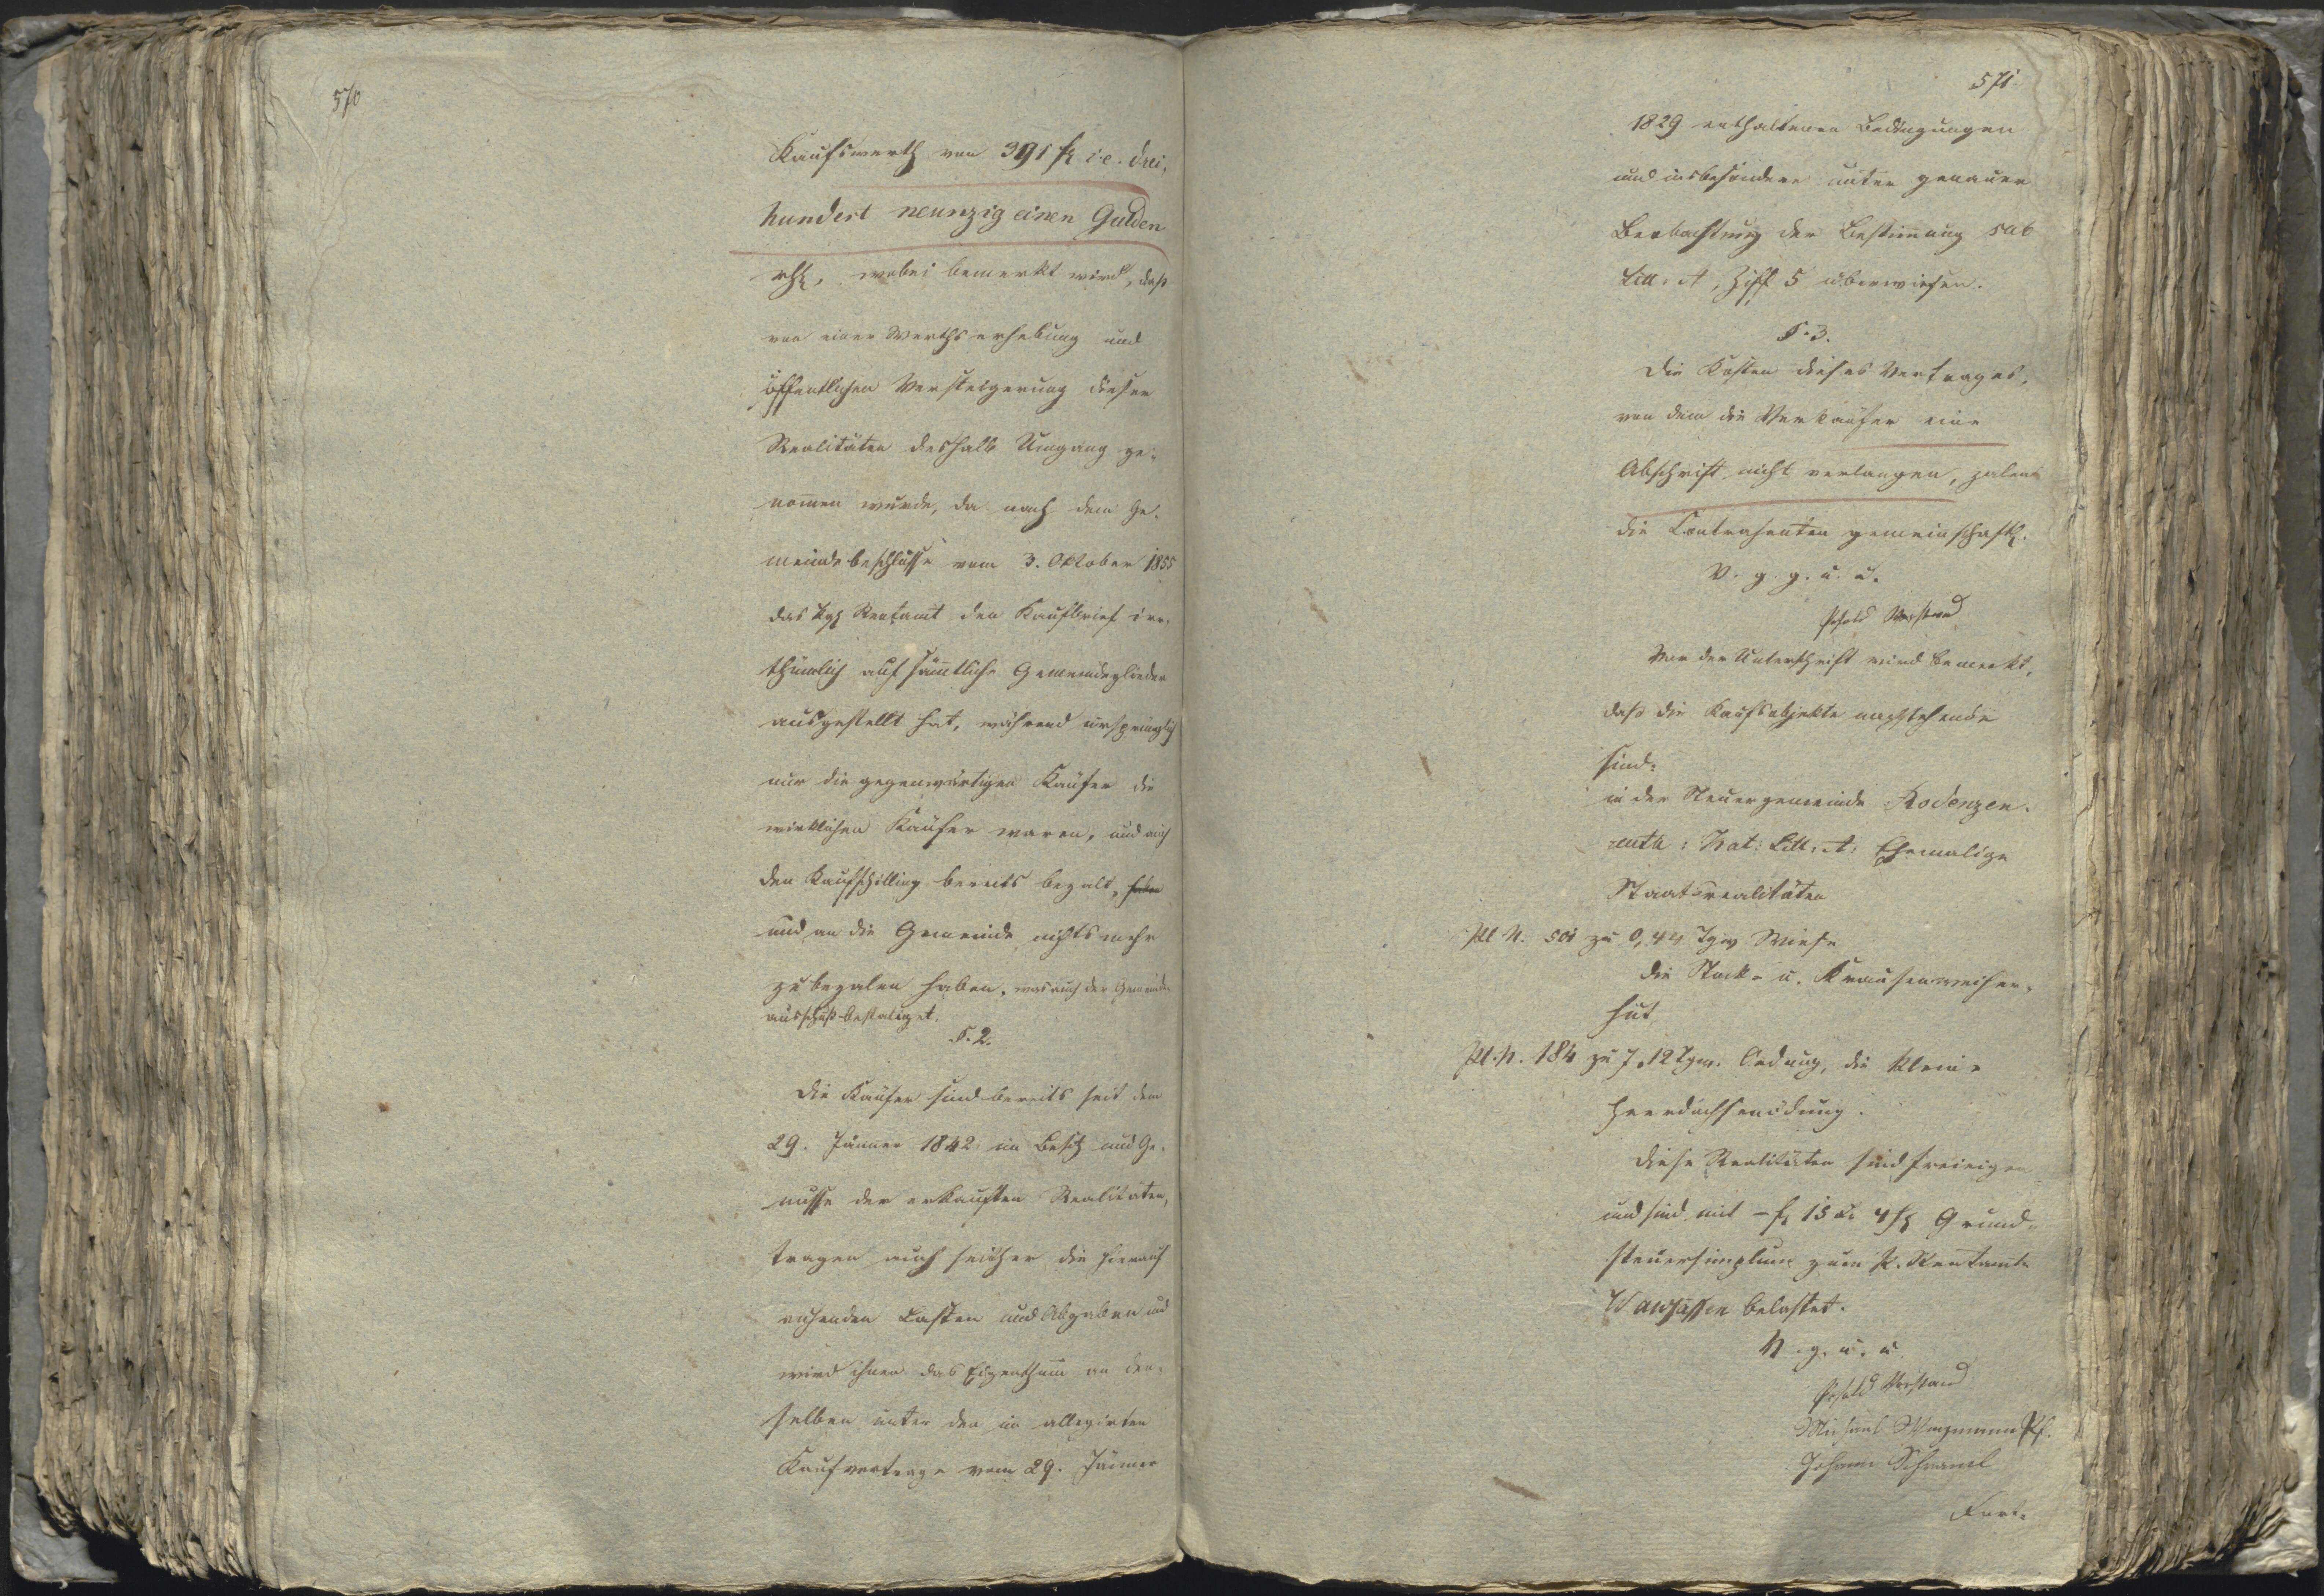 570
Kaufswerth von 391 fl i.e. drei,
hundert neunzig einen Gulden
rhl, wobei bemerkt wird, daß
von einer Werthserhebung und
öffentlichen Versteigerung dieser
Realitäten deshalb Umgang ge-
nom̄en wurde, da nach dem Ge-
meindebeschlusse vom 3. Oktober 1855
das kgl Rentamt den Kaufbrief irr-
thümlich auf sämtliche Gemeindeglieder
ausgestellt hat, während ursprünglich
nur die gegenwärtigen Käufer die
wirklichen Käufer waren, und auch
den Kaufschilling bereits bezalt, haben
und an die Gemeinde nichts mehr
zu bezalen haben, was auch der Gemeinde-
ausschuß bestätiget.
§. 2.
Die Käufer sind bereits seit dem
29. Jänner 1842 im Besitz und Ge-
nusse der erkauften Realitäten,
tragen auch seither die hierauf
ruhenden Lasten und Abgaben und
wird ihnen das Eigenthum an den-
selben unter den im allegirten
Kaufvertrage vom 29. Jänner
571.
1829 enthaltenen Bedingungen
und insbesondere unter genauer
Beobachtung der Bestim̄ung sub
Litt. A, Ziff 5 überwiesen.
§. 3.
Die Kosten dieses Vertrages,
von dem die Verkäufer eine
Abschrift nicht verlangen, zalen
die Contrahenten gemeinschaftl.
V. g. g. u. u.
Vorstand
Vor der Unterschrift wird bemerkt,
daß die Kaufsobjekte nachstehende
sind:
in der Steuergemeinde Rodenzen-
reuth: Kat: Litt: A: Ehemalige
Staatsrealitäten
Pl N. 501 zu 0,44 Tgw Wiese
die Stock- u. Krausenweiher-
hut
Pl. N. 184 zu 7,12 Tgw. Oedung, die kleine
Diese Realitäten sind freieigen
und sind mit - fl 15 kr 4 hl Grund-
steuersimplum zum k. Rentamte
Waldsassen belastet.
V. g. u. u.
Vorstand
Michael
Johann